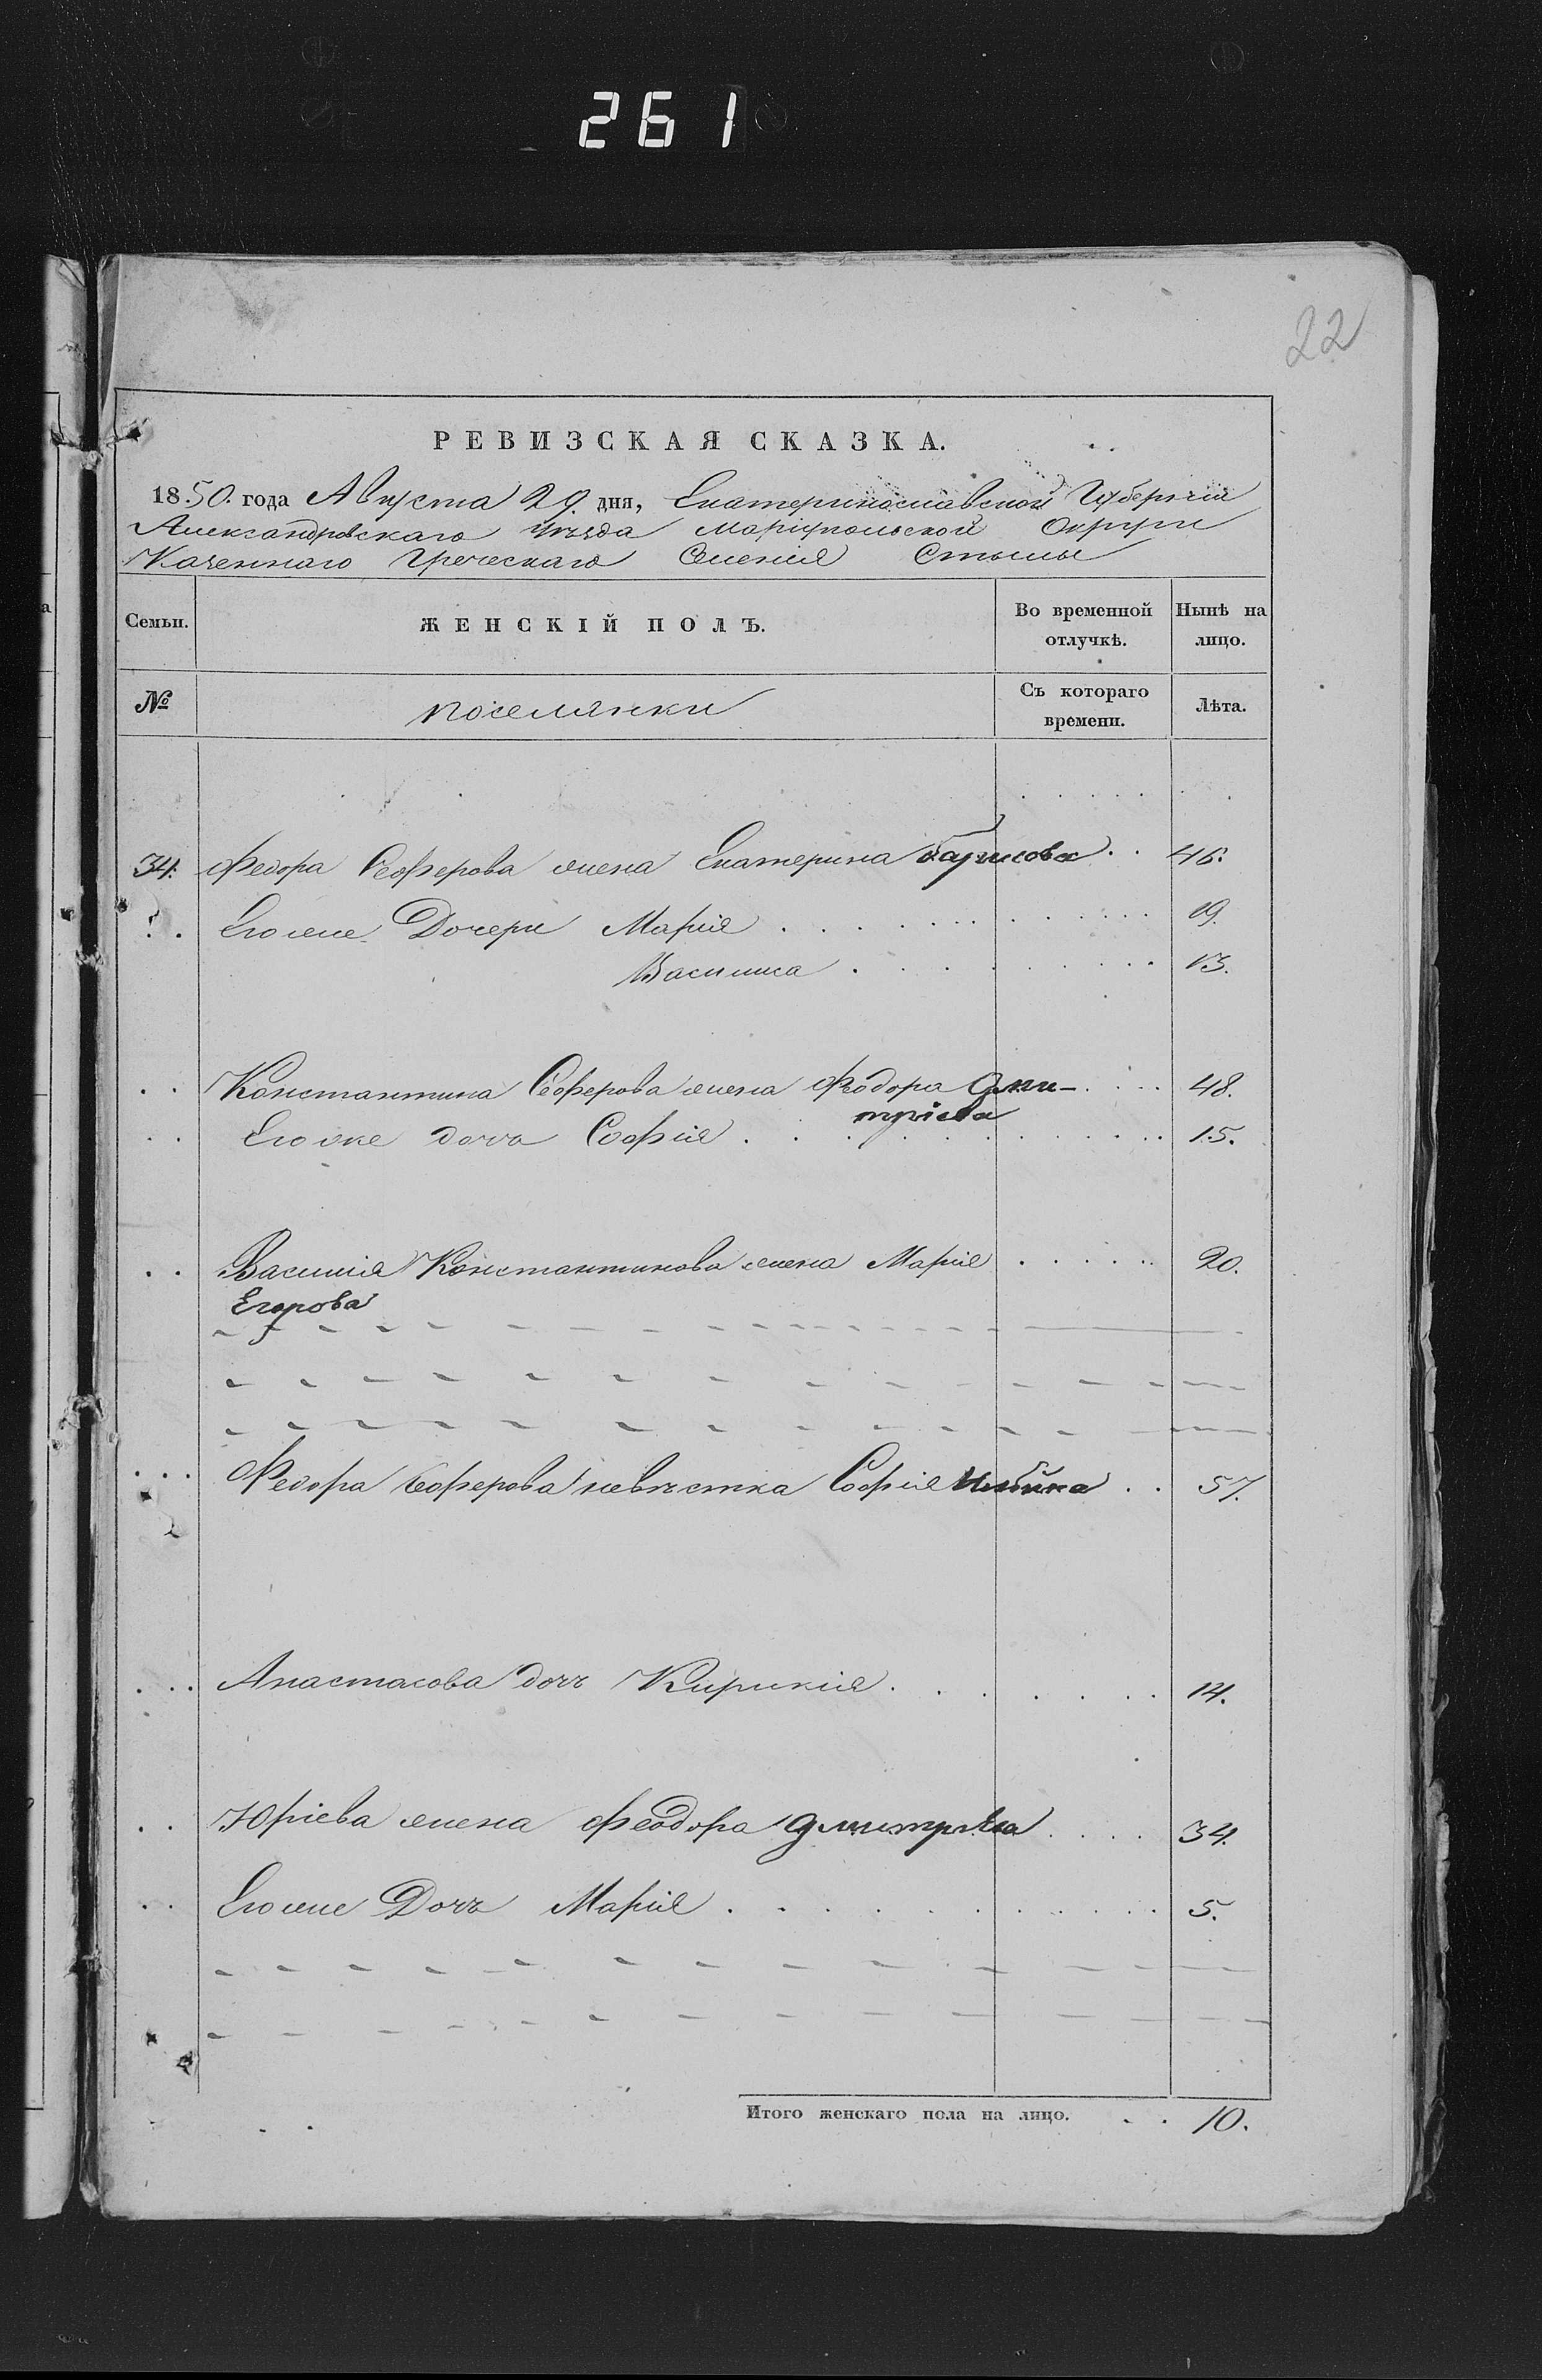 261
22
РЕВИЗСКАЯ СКАЗКА.
1850. года Августа 29. дня, Екатеринославской Губерніи
Александровскаго Уѣзда Маріупольской Округи
Казеннаго Греческаго Селенія Стылы
Семьи. ЖЕНСКІЙ ПОЛЪ. Во временной отлучкѣ. Нынѣ на лицо.
№ поселянки Съ котораго времени. Лѣта.
34. Федора Сеферова жена Екатерина 46.
Его же Дочери Марія 19.
Василиса 13.
Константина Сеферова жена Феодора Дми- 48.
тріева
Его же дочь Софія 15.
Василія Константинова жена Марія 20.
Егорова
Федора Сеферова невѣстка Софія Ильина 57.
Анастасова дочь Кирикія 14.
Юріева жена Феодора Дмитріева 34.
Его же Дочь Марія 5.
Итого женскаго пола на лицо. 10.